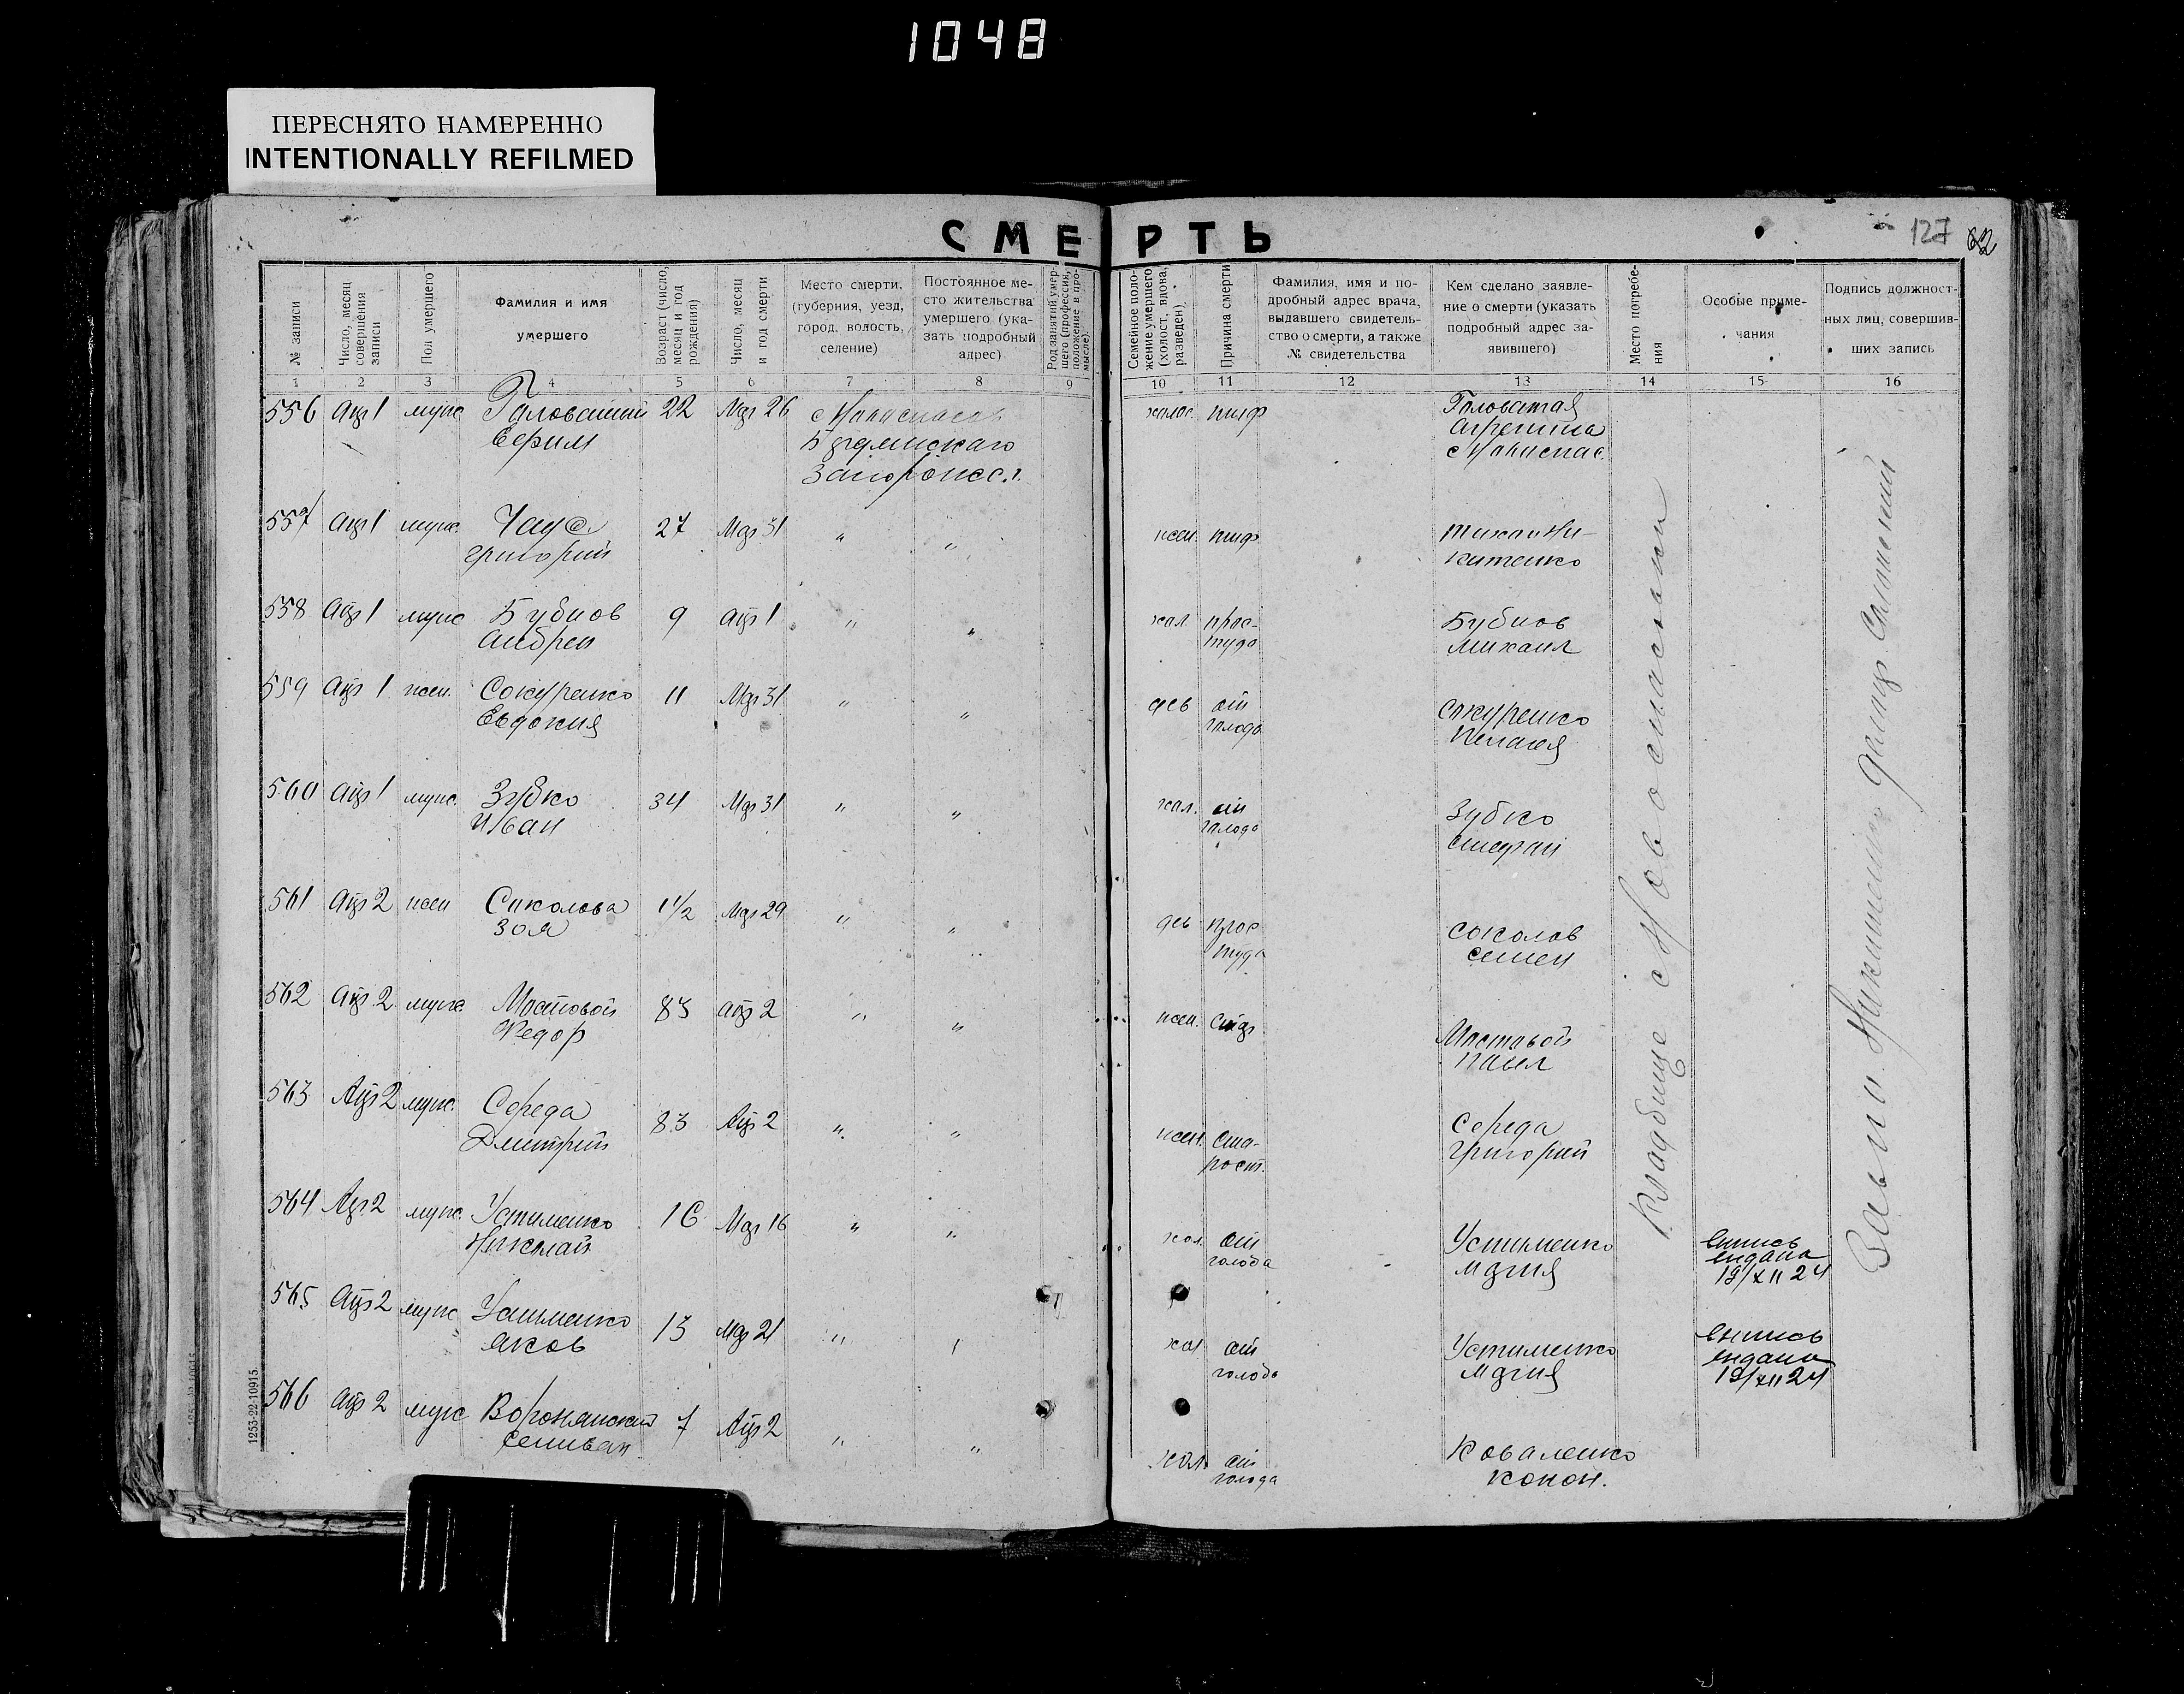 1048
ПЕРЕСНЯТО НАМЕРЕННО
INTENTIONALLY REFILMED
СМЕРТЬ
127
62
№ записи
Число, месяц совершения записи
Пол умершего
Фамилия и имя умершего
Возраст (число, месяц и год рождения)
Число, месяц и год смерти
Место смерти, (губерния, уезд, город, волость, селение)
Постоянное место жительства умершего (указать подробный адрес)
Род занятий умершего (профессия, положение в промысле)
Семейное положение умершего (холост, вдова, разведен)
Причина смерти
Фамилия, имя и подробный адрес врача, выдавшего свидетельство о смерти, а также № свидетельства
Кем сделано заявление о смерти (указать подробный адрес заявившего)
Место погребения
Особые примечания
Подпись должностных лиц, совершивших запись
1 2 3 4 5 6 7 8 9 10 11 12 13 14 15 16
556 Апр 1 муж 22 Мар 26 холос. тиф Головатая
Ефим
557 Апр 1 муж. Чаус 27 Мар 31 " " жен. тиф
Григорий
558 Апр 1 муж Бубнов 9 Апр 1 " " хол прос- Бубнов
Андрей туда Михаил
559 Апр 1 жен. Сокуренко 11 Мар 31 " " дев от Сокуренко
Евдокия голода Пелагея
560 Апр 1 муж. Зубко 34 Мар 31 " " хол. от Зубко
Иван голода Стефан
561 Апр 2 жен Соколова 1 1/2 Мар 29 " " дев прос Соколов
Зоя туда Семен
562 Апр 2 муж. Мостовой 83 Апр 2 " " жен. Мостовой
Федор Павел
563 Апр 2 муж. Середа 83 Апр 2 " " жен. ста- Середа
Дмитрий рост. Григорий
564 Апр 2 муж. Устименко 16 Мар 16 " " хол. от Устименко
Николай голода Мария
19/XII 24
565 Апр 2 муж Устименко 13 Мар 21 " " хол от Устименко
Яков голода Мария
19/XII 24
566 Апр 2 муж 7 Апр 2 " " хол. от Коваленко
Селиван голода Конон.
Кладбище с Новоспасовки
1253-22-10915.